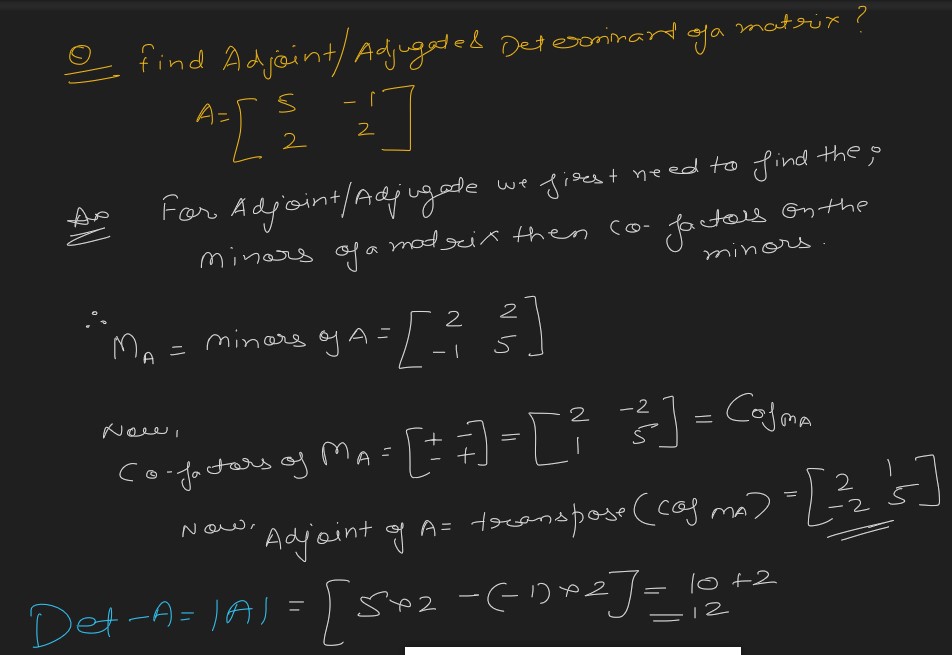 Q find Adjoint/Adjugated Determinant of a matrix?
A = [ 5 -1
2 2 ]
Ans For Adjoint/Adjugade we first need to find the ;
minors of a matrix then co-factors on the
minors.
∴ M_A = minors of A = [ 2 2
-1 5 ]
Now,
Co-factors of M_A = [ + -
- + ] = [ 2 -2
1 5 ] = Cof_MA
Now, Adjoint of A = transpose (cof MA) = [ 2 1
-2 5 ]
Det-A = |A| = [ 5*2 - (-1)*2 ] = 10 + 2
= 12